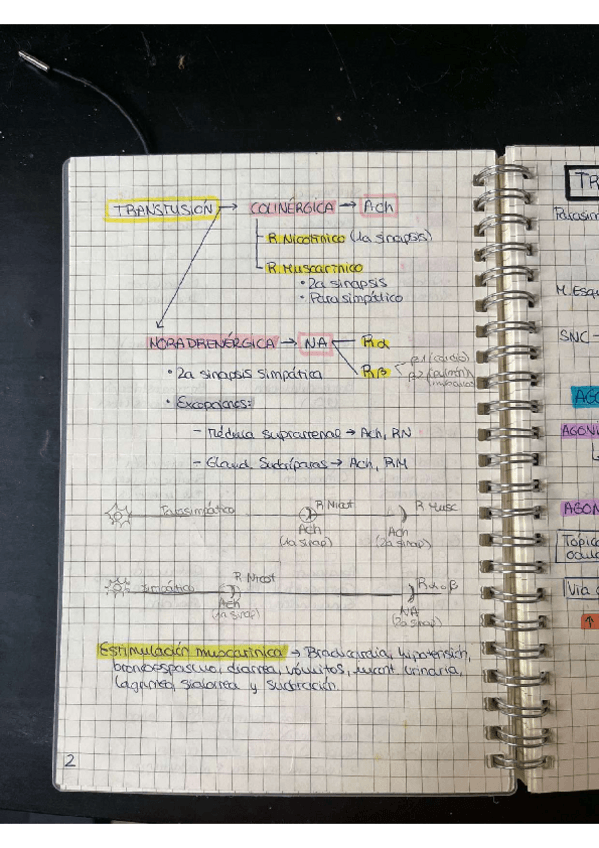 TRANSFUSIÓN → COLINÉRGICA → Ach
R. Nicotínico (1a sinapsis)
R. Muscarínico
• 2a sinapsis
• Parasimpático
NORADRENÉRGICA → NA
Rα
Rβ
β1 (cardio)
β2 (pulmón,
• 2a sinapsis simpática
• Excepciones:
- Médula suprarrenal → Ach, RN
- Gland. Sudoríparas → Ach, RM
Parasimpático
R Nicot
R Musc
Ach
(1a sinap)
Ach
(2a sinap)
Simpático
R Nicot
R α o β
Ach
(1a sinap)
NA
(2a sinap)
Estimulación muscarínica → Bradicardia, hipotensión,
broncoespasmo, diarrea, vómitos, incont. urinaria,
lagrimeo, sialorrea y sudoración.
2
TR
Parasim
M. Esqu
SNC -
AGO
AGONI
AGON
Tópica
ocula
Vía
↑